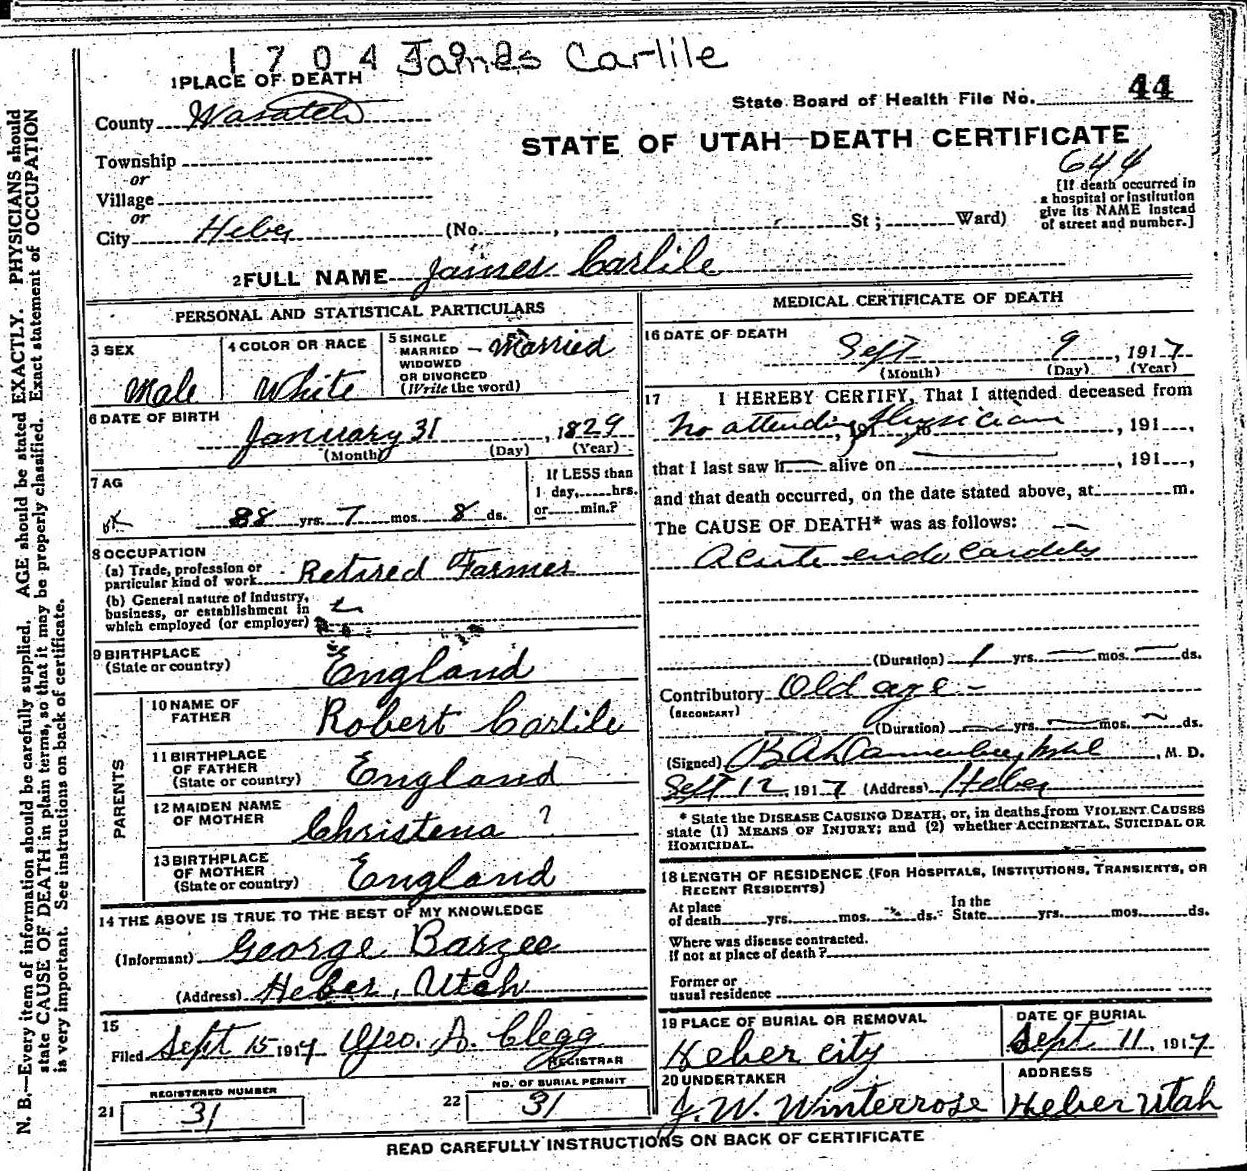 1704 James Carlile
1 PLACE OF DEATH
State Board of Health File No. 44
County Wasatch
STATE OF UTAH—DEATH CERTIFICATE
644
Township
or
Village
or
City Heber (No. , St ; Ward)
[If death occurred in
a hospital or institution
give its NAME instead
of street and number.]
2 FULL NAME James Carlile
PERSONAL AND STATISTICAL PARTICULARS
3 SEX
Male
4 COLOR OR RACE
White
5 SINGLE
MARRIED – Married
WIDOWED
OR DIVORCED
(Write the word)
6 DATE OF BIRTH
January 31, 1829
(Month) (Day) (Year)
7 AG
88 yrs. 7 mos. 8 ds.
If LESS than
1 day, hrs.
or min.?
8 OCCUPATION
(a) Trade, profession or
particular kind of work Retired Farmer
(b) General nature of Industry,
business, or establishment in
which employed (or employer)
9 BIRTHPLACE
(State or country) England
PARENTS
10 NAME OF
FATHER Robert Carlile
11 BIRTHPLACE
OF FATHER
(State or country) England
12 MAIDEN NAME
OF MOTHER Christena ?
13 BIRTHPLACE
OF MOTHER
(State or country) England
14 THE ABOVE IS TRUE TO THE BEST OF MY KNOWLEDGE
(Informant) George Barzee
(Address) Heber, Utah
15
Filed Sept 15 1917 Geo. A. Clegg
REGISTRAR
REGISTERED NUMBER
21 31
NO. OF BURIAL PERMIT
22 31
MEDICAL CERTIFICATE OF DEATH
16 DATE OF DEATH
Sept 9, 1917
(Month) (Day) (Year)
17 I HEREBY CERTIFY, That I attended deceased from
No attending physician, 191 , to , 191 ,
that I last saw h — alive on , 191 ,
and that death occurred, on the date stated above, at m.
The CAUSE OF DEATH* was as follows: —
Acute endocarditis
(Duration) 1 yrs. — mos. — ds.
Contributory Old age –
(SECONDARY)
(Duration) — yrs. — mos. — ds.
(Signed) , M. D.
Sept 12, 1917 (Address) Heber
* State the DISEASE CAUSING DEATH, or, in deaths from VIOLENT CAUSES
state (1) MEANS OF INJURY; and (2) whether ACCIDENTAL, SUICIDAL OR
HOMICIDAL.
18 LENGTH OF RESIDENCE (FOR HOSPITALS, INSTITUTIONS, TRANSIENTS, OR
RECENT RESIDENTS)
At place
of death yrs. mos. ds.
In the
State yrs. mos. ds.
Where was disease contracted.
If not at place of death?
Former or
usual residence
19 PLACE OF BURIAL OR REMOVAL
Heber city
DATE OF BURIAL
Sept. 11, 1917
20 UNDERTAKER
J. W. Winterrose
ADDRESS
Heber Utah
READ CAREFULLY INSTRUCTIONS ON BACK OF CERTIFICATE
N. B.—Every item of information should be carefully supplied. AGE should be stated EXACTLY. PHYSICIANS should
state CAUSE OF DEATH in plain terms, so that it may be properly classified. Exact statement of OCCUPATION
is very important. See instructions on back of certificate.